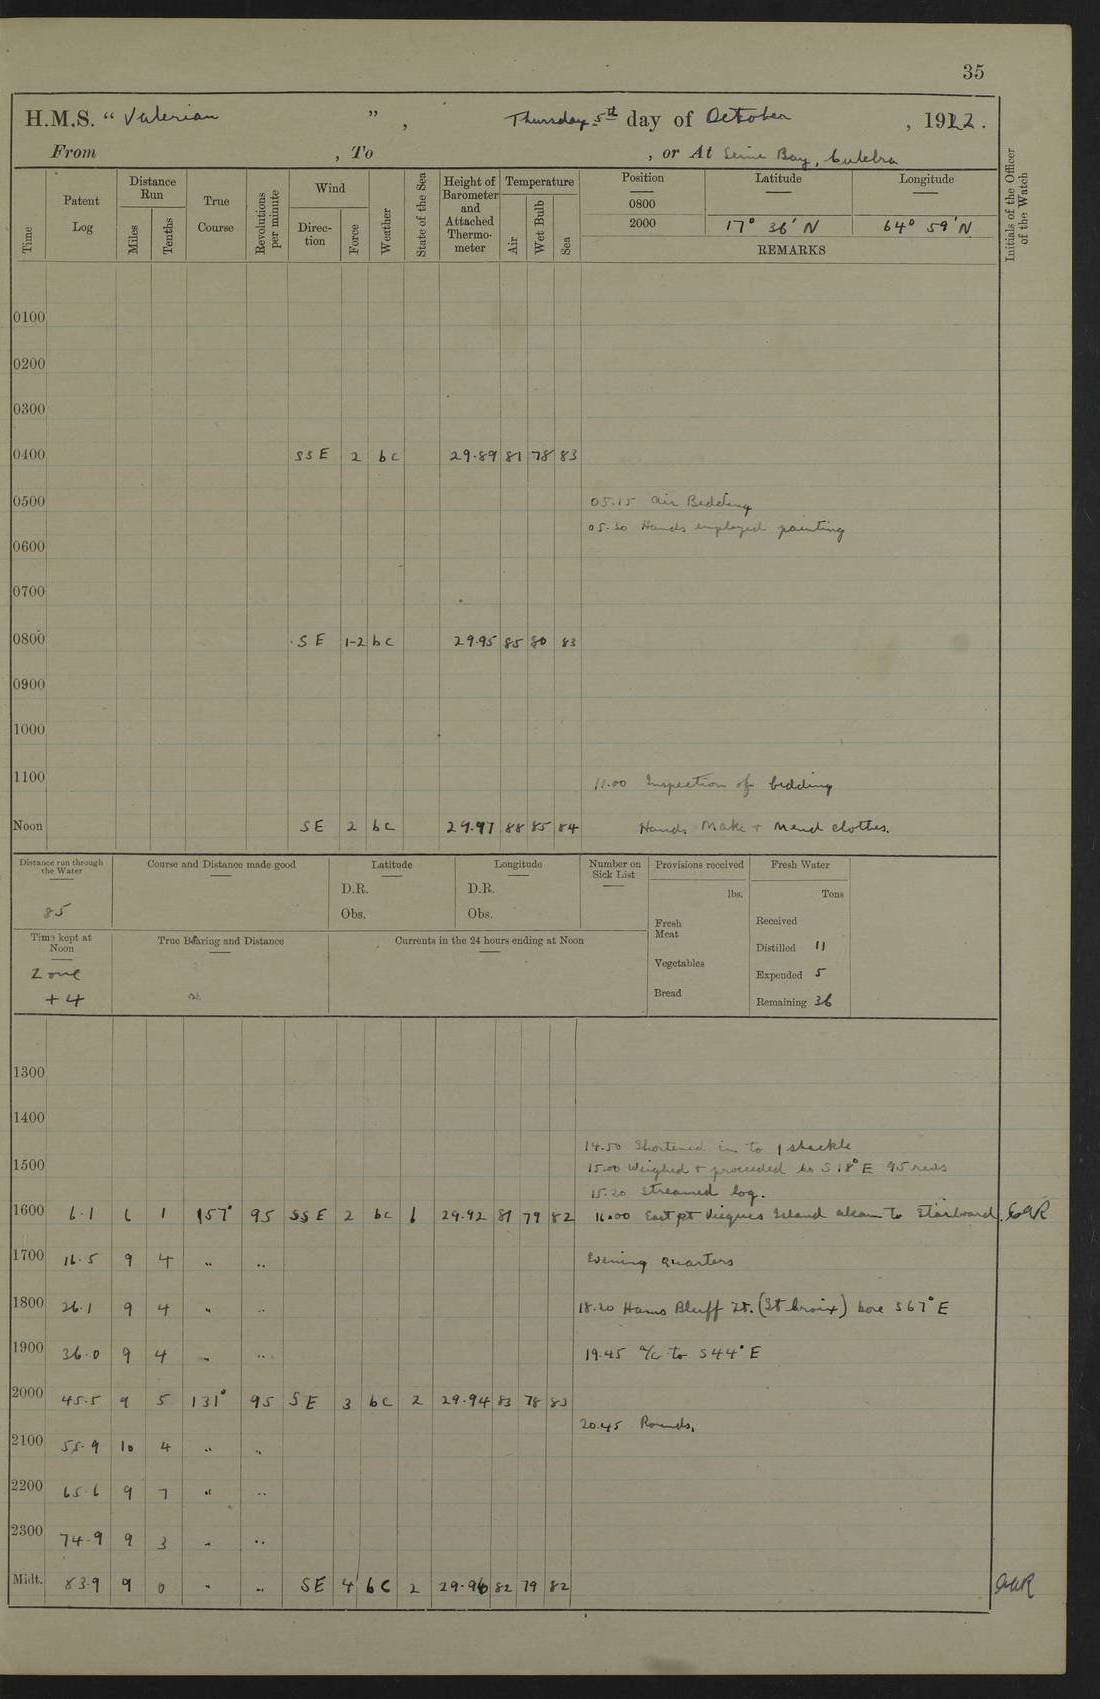 35
H.M.S. “ Valerian ” , Thursday 5th day of October , 1922.
From , To , or At Culebra
Time Patent Log Distance Run Miles Tenths True Course Revolutions per minute Wind Direction Force Weather State of the Sea Height of Barometer and Attached Thermometer Temperature Air Wet Bulb Sea Position Latitude Longitude Initials of the Officer of the Watch
0800
2000 17° 36' N 64° 59' N
REMARKS
0100
0200
0300
0400 SSE 2 bc 29.89 81 78 83
0500 05.15 Air Bedding
05.30 Hands employed painting
0600
0700
0800 SE 1-2 bc 29.95 85 80 83
0900
1000
1100 11.00 Inspection of bedding
Noon SE 2 bc 29.97 88 85 84 Hands Make + Mend clothes.
Distance run through the Water Course and Distance made good Latitude Longitude Number on Sick List Provisions received Fresh Water
D.R. D.R. lbs. Tons
85 Obs. Obs. Fresh Meat Received
Time kept at Noon True Bearing and Distance Currents in the 24 hours ending at Noon Distilled 11
Zone Vegetables Expended 5
+4 Bread Remaining 36
1300
1400
14.50 Shortened in to 1 shackle
1500 15.00 Weighed + proceeded to S 18° E 95 revs
15.20 Streamed log.
1600 6.1 6 1 157° 95 SSE 2 bc 1 29.92 81 79 82 16.00 East pt Vieques Island abeam to Starboard.
1700 16.5 9 4 " " Evening quarters
1800 26.1 9 4 " " 18.20 Hams Bluff Lt. (St Croix) bore S67°E
1900 36.0 9 4 " " 19.45 a/c to S44°E
2000 45.5 9 5 131° 95 SE 3 bc 2 29.94 83 78 83
20.45 Rounds.
2100 55.9 10 4 " "
2200 65.6 9 7 " "
2300 74.9 9 3 " "
Midt. 83.9 9 0 " " SE 4 bc 2 29.96 82 79 82